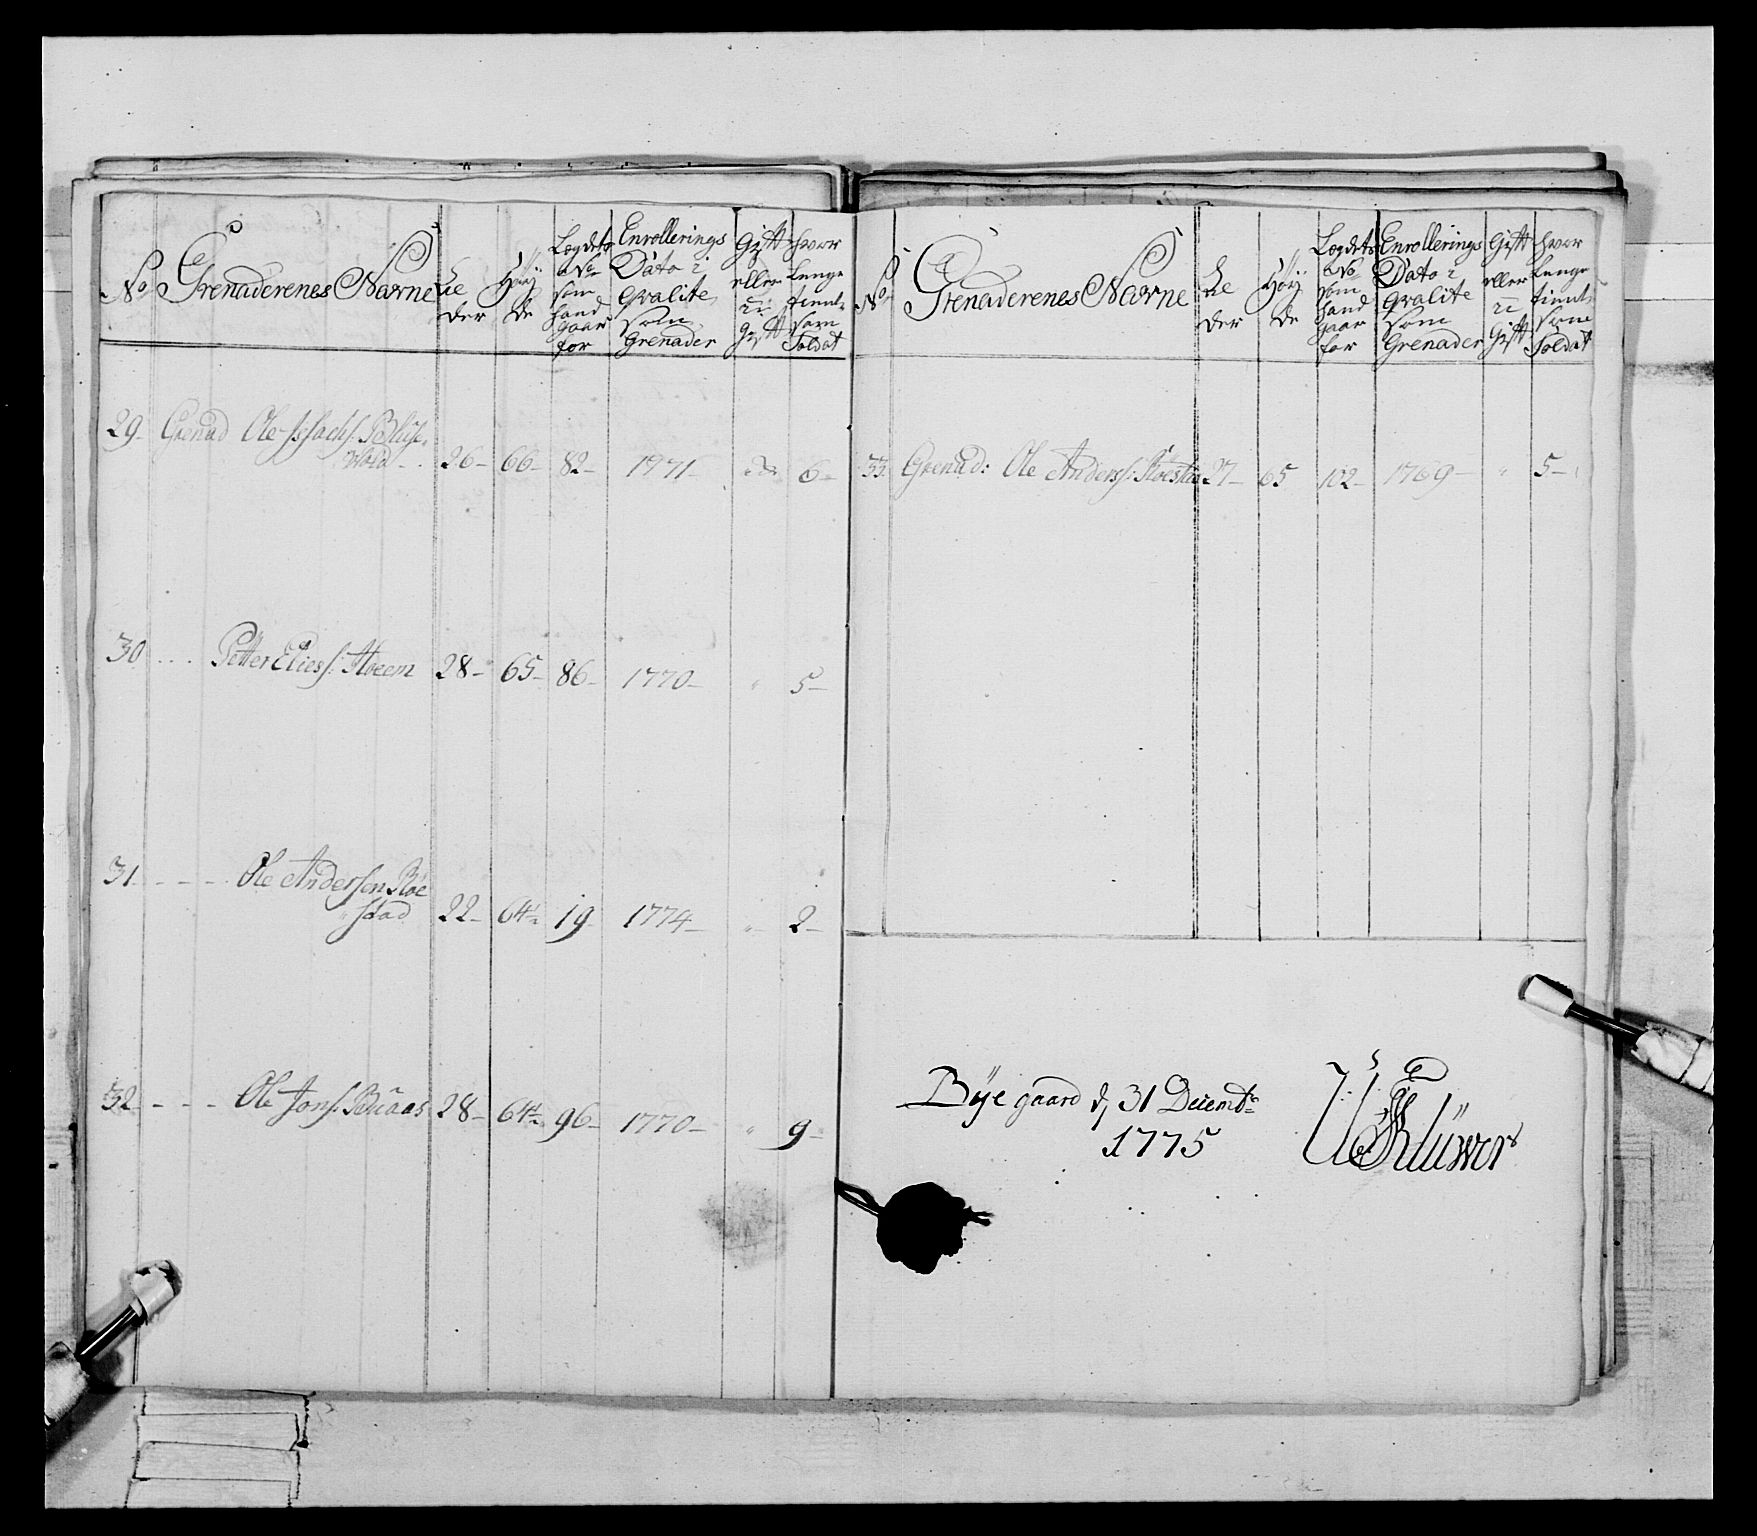 No Grenaderenes Navne Al der Høy de Lægdets No som hand gaar for Enrollerings Dato i Qvalite som Grenader Gift eller u Gift hvor lenge tient som Soldat
29 Grenad Ole Issachs:
Wold 26 66 82 1771 do 6
30 Petter Elies: Hoeem 28 65 86 1770 " 5
31 Ole Andersen Røe
stad 22 64½ 19 1774 " 2
32 Ole Jons: Buaas 28 64½ 96 1770 " 9
No Grenaderenes Navne Al der Høy de Lægdets No som hand gaar for Enrollerings Dato i Qvalite som Grenader Gift eller u Gift hvor lenge tient som Soldat
33 Grenad: Ole Anderss: 27 65 102 1769 " 5
Bye gaard d. 31 Decembr
1775
Klüwer